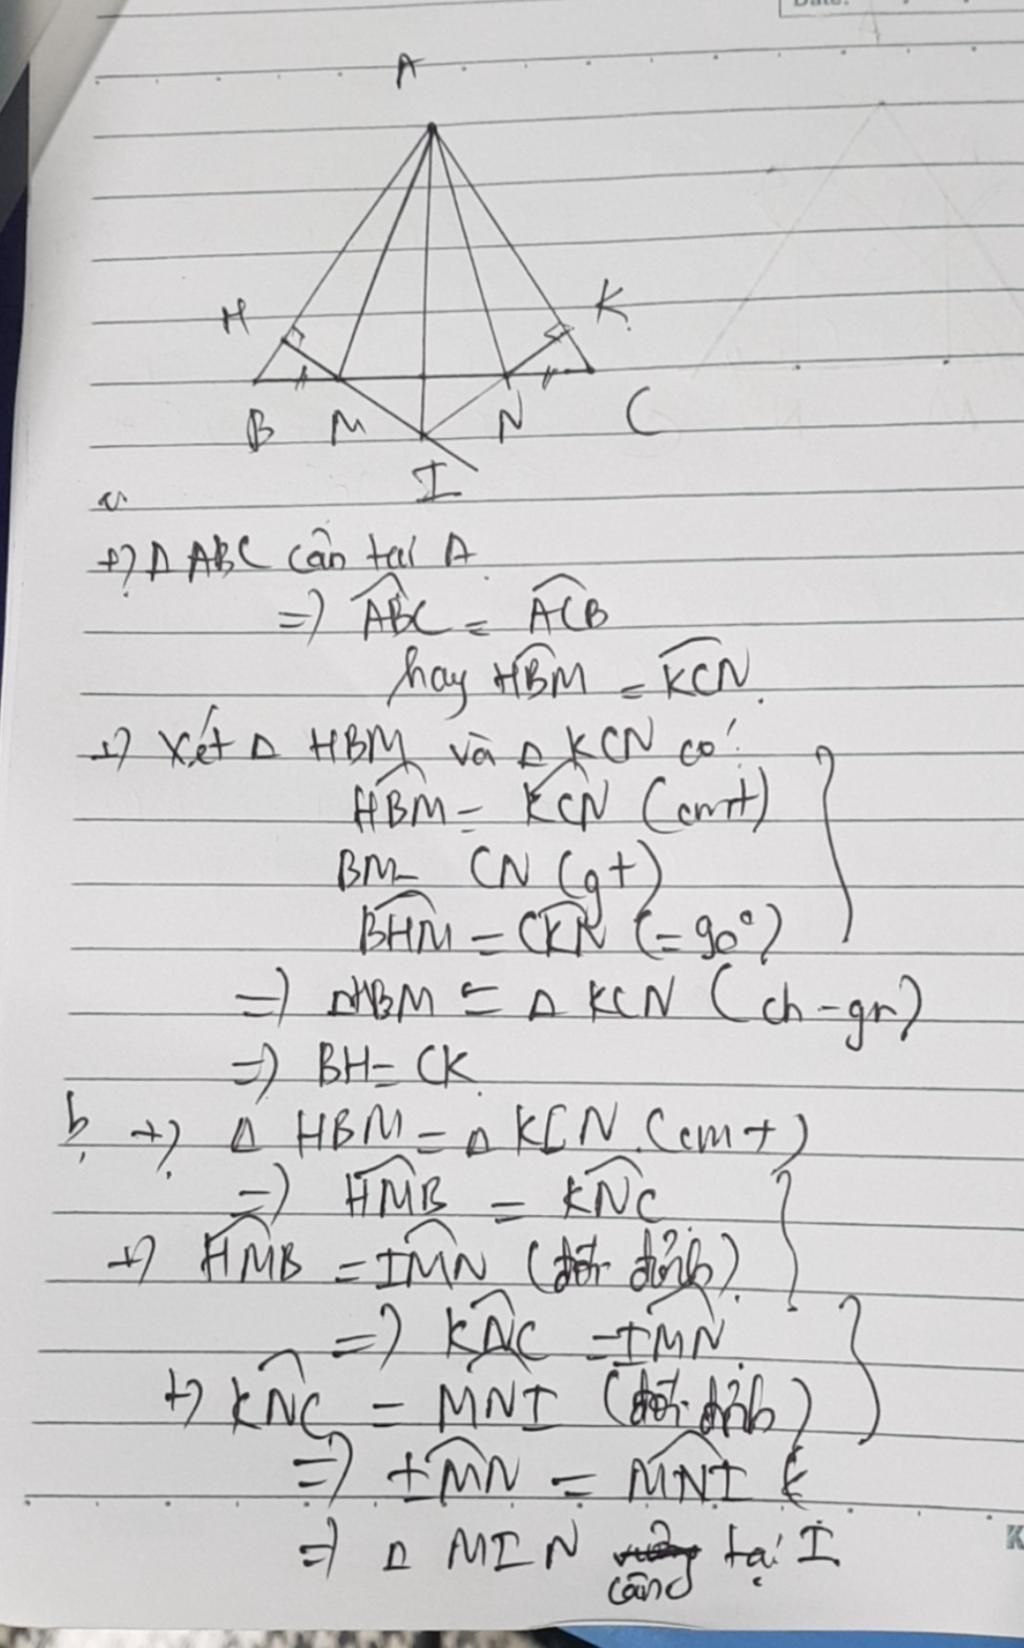 Date:
A
H
K
B M N C
I
a,
+) Δ ABC cân tại A
=> ABC = ACB
hay HBM = KCN.
+) Xét Δ HBM và Δ KCN có:
HBM = KCN (cmt)
BM = CN (gt)
BHM = CKN (= 90°)
=> ΔHBM = Δ KCN (ch-gn)
=> BH = CK
b, +) Δ HBM = Δ KCN (cmt)
=> HMB = KNC
+) HMB = IMN (đối đỉnh)
=> KNC = IMN
+) KNC = MNI (đối đỉnh)
=> IMN = MNI
=> Δ MIN cân tại I
K